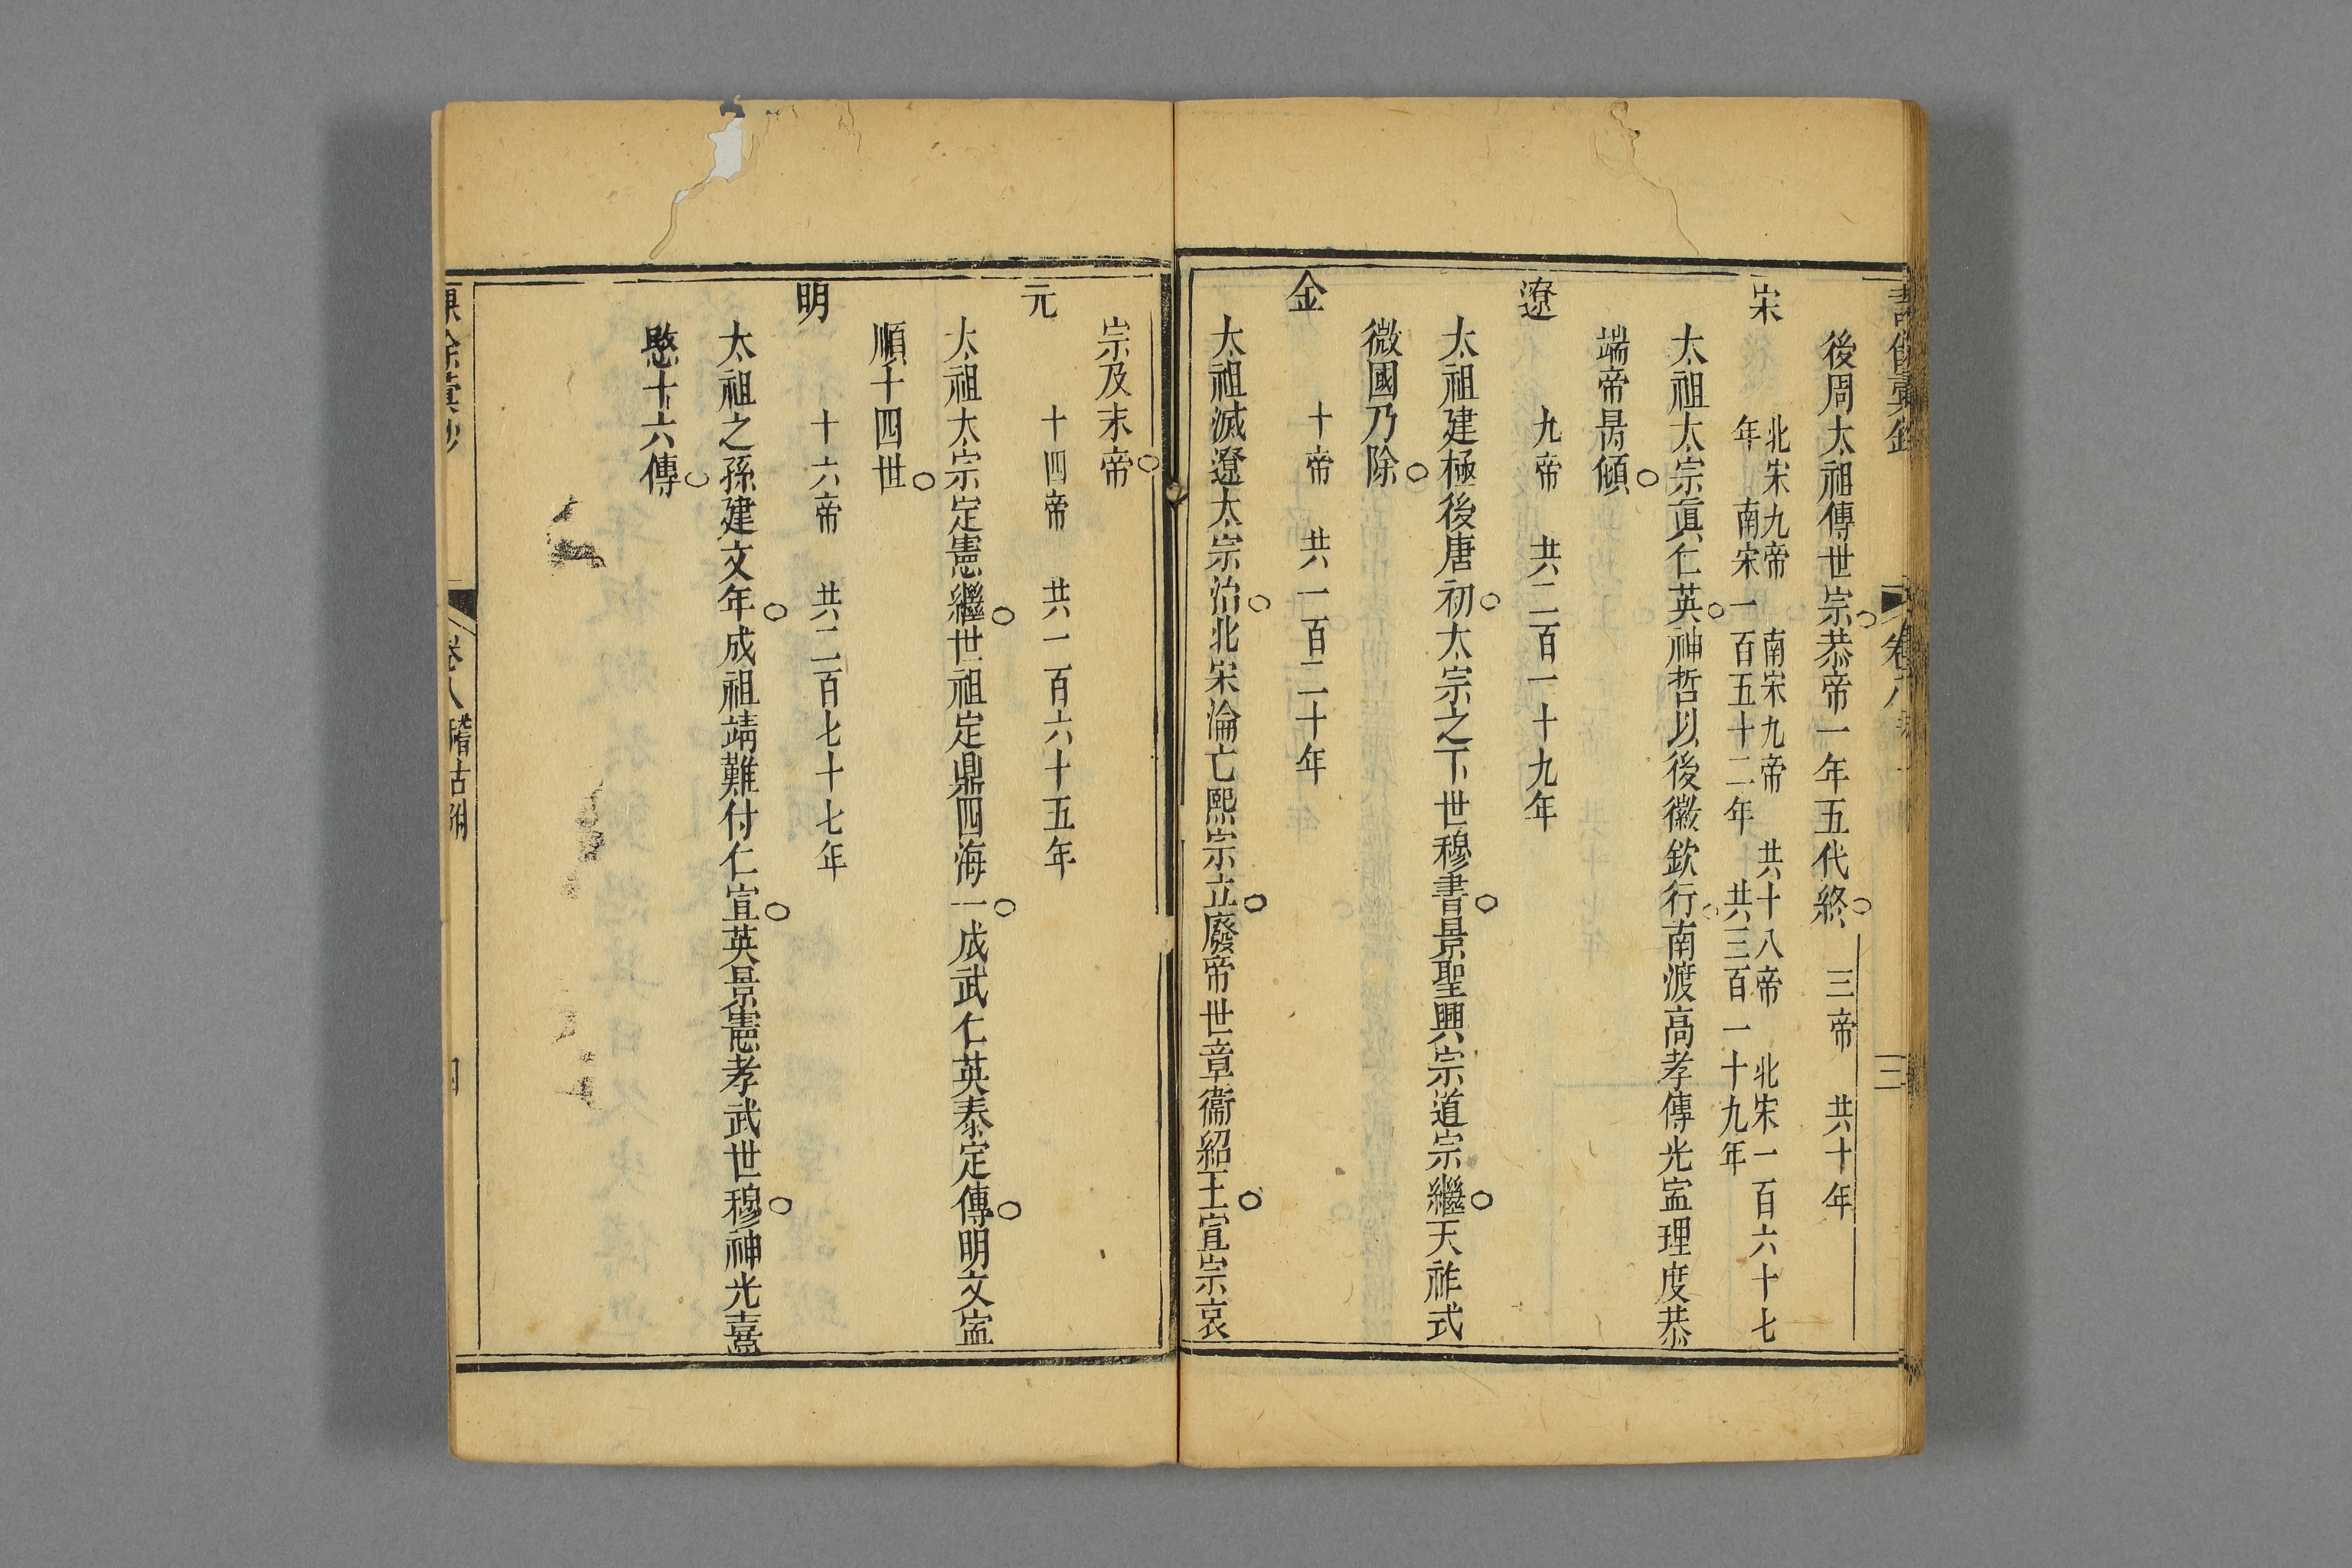 後周太祖傳世宗恭帝一年五代終 三帝 共十年
宋
北宋九帝 南宋九帝 共十八帝 北宋一百六十七
年 南宋一百五十二年 共三百一十九年
太祖太宗眞仁英神哲以後徽欽行南渡高孝傳光寍理度恭
端帝昺傾
遼
九帝 共二百一十九年
太祖建極後唐初太宗之下世穆書景聖興宗道宗繼天祚式
微國乃除
金
十帝 共一百二十年
太祖滅遼太宗治北宋淪亡熙宗立廢帝世章衞紹王宣宗哀
宗及末帝
元
十四帝 共一百六十五年
太祖太宗定憲繼世祖定鼎四海一成武仁英泰定傳明文寍
順十四世
明
十六帝 共二百七十七年
太祖之孫建文年成祖靖難付仁宣英景憲孝武世穆神光熹
愍十六傳
卷八 稽古附